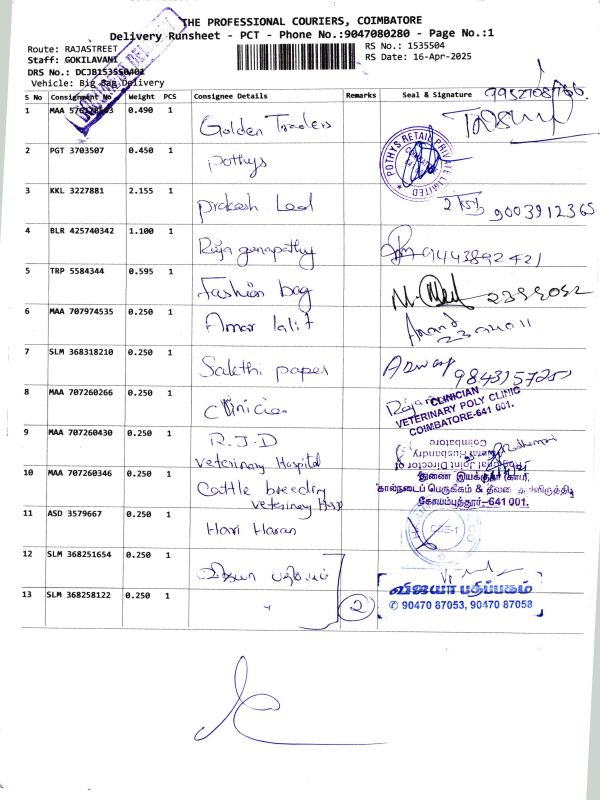 THE PROFESSIONAL COURIERS, COIMBATORE
Delivery Runsheet - PCT - Phone No.:9047080280 - Page No.:1
Route: RAJASTREET
RS No.: 1535504
Staff: GOKILAVANI
RS Date: 16-Apr-2025
DRS No.:
Vehicle: Big Bag Delivery
S No Consignment No Weight PCS Consignee Details Remarks Seal & Signature
9952708766
1 MAA 0.490 1 Golden Traders
2 PGT 3703507 0.450 1 Pothys
POTHYS RETAIL PRIVATE LIMITED
3 KKL 3227881 2.155 1 prakash Lad 9003912365
4 BLR 425740342 1.100 1 Raja ganapathy 9443892421
5 TRP 5584344 0.595 1 Fashion bag
6 MAA 707974535 0.250 1 Amar lalit Anand
7 SLM 368318210 0.250 1 Sakthi paper
8 MAA 707260266 0.250 1 Clinician
CLINICIAN
VETERINARY POLY CLINIC
COIMBATORE-641 001.
9 MAA 707260430 0.250 1 R.J.D
veterinary Hospital
Regional Joint Director of
Animal Husbandry
Coimbatore
10 MAA 707260346 0.250 1 Cattle breeding
veterinary Hosp
துணை இயக்குநர்
கால்நடைப் பெருக்கம் & தீவன அபிவிருத்தி
கோயம்புத்தூர்-641 001.
11 ASD 3579667 0.250 1 Hari Haran
CBE-1
12 SLM 368251654 0.250 1 விஜயா பதிப்பகம்
13 SLM 368258122 0.250 1 " 2
விஜயா பதிப்பகம்
90470 87053, 90470 87058